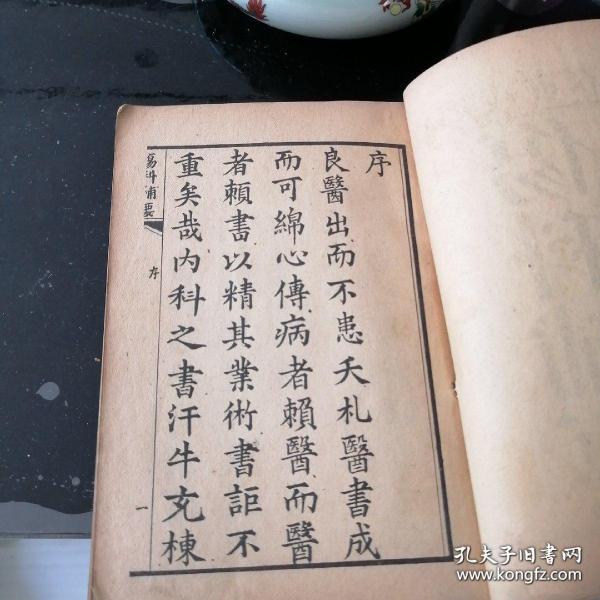 序
良醫出而不患夭札醫書成
而可綿心傳病者賴醫而醫
者賴書以精其業術書詎不
重矣哉內科之書汗牛充棟
傷科補要
序
一
孔夫子旧书网
www.kongfz.com